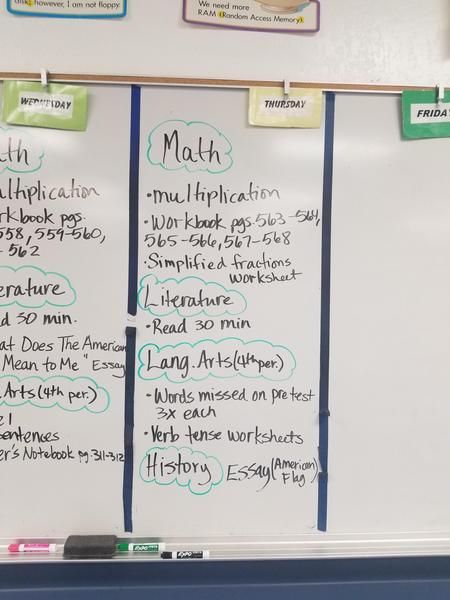 disk; however, I am not floppy.
We need more
RAM (Random Access Memory).
WEDNESDAY
THURSDAY
FRIDA
th
ultiplication
rkbook pgs.
558, 559-560,
- 562
erature
d 30 min.
at Does The American
Mean to Me" Essay
.Arts (4th per.)
2 1
sentences
er's Notebook pg. 311-312
Math
•multiplication
•Workbook pgs. 563-564,
565-566, 567-568
•Simplified fractions
worksheet
Literature
•Read 30 min
Lang. Arts (4th per.)
•Words missed on pretest
3x each
•Verb tense worksheets
History Essay (American
Flag)
EXPO
EXPO